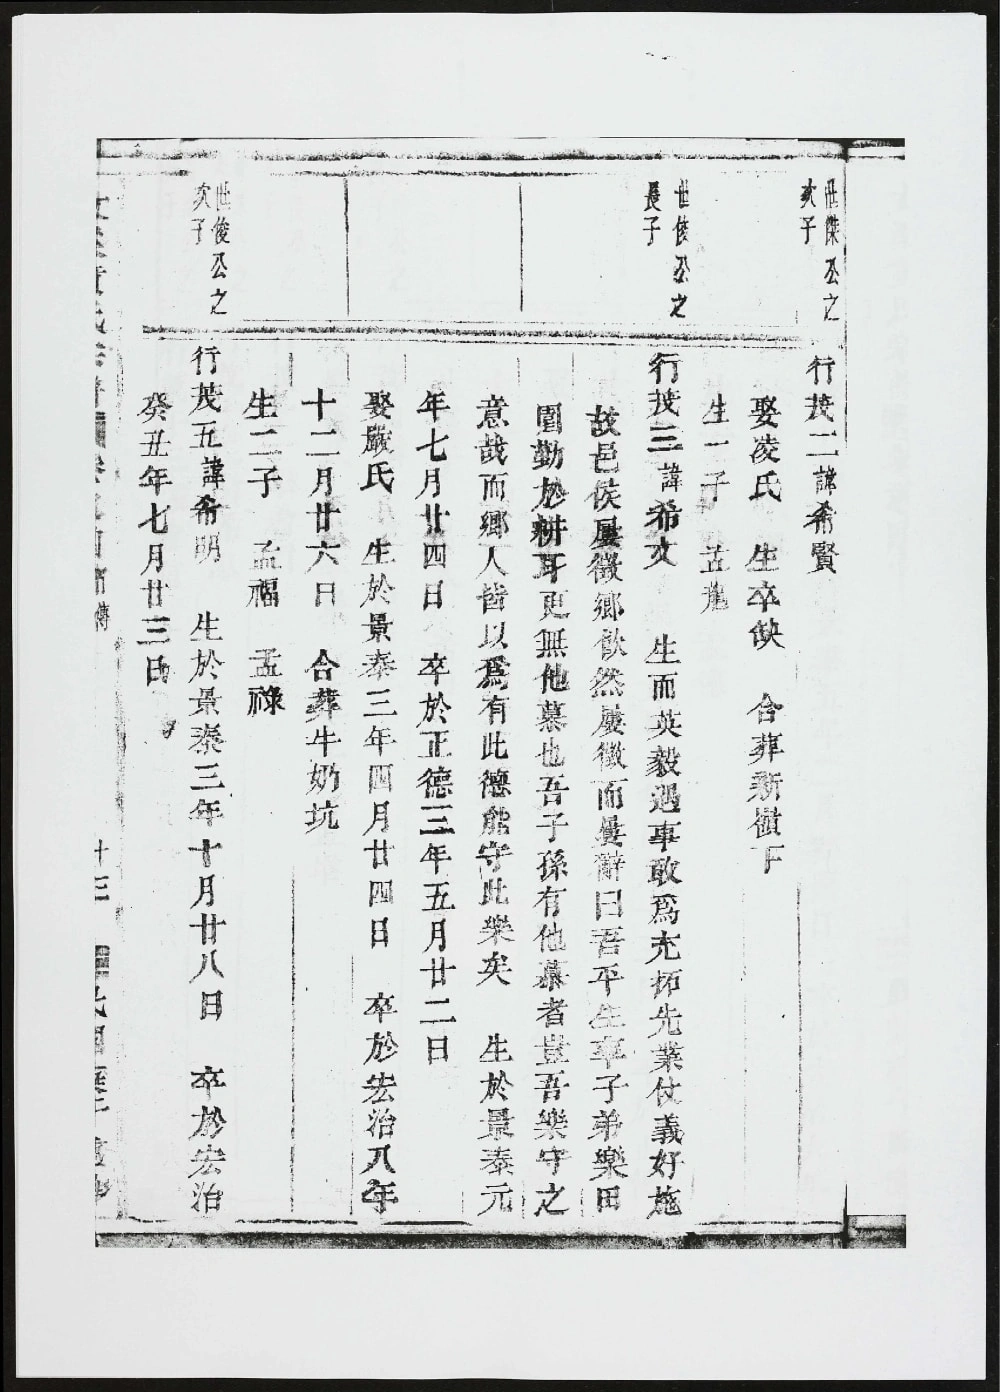 世傑公之
次子
行茂二諱希賢
娶凌氏　生卒缺　合葬新嶺下
生一子　孟龍
世俊公之
長子
行茂三諱希文　生而英毅遇事敢為充拓先業仗義好施
故邑侯屢徵鄉飲然屢徵而屢辭曰吾平生率子弟樂田
園勤於耕耳更無他慕也吾子孫有他慕者豈吾樂守之
意哉而鄉人皆以為有此德能守此樂矣　生於景泰元
年七月廿四日　卒於正德三年五月廿二日
娶嚴氏　生於景泰三年四月廿四日　卒於宏治八年
十二月廿六日　合葬牛奶坑
生二子　孟福　孟祿
世俊公之
次子
行茂五諱希明　生於景泰三年十月廿八日　卒於宏治
癸丑年七月廿三日
十三